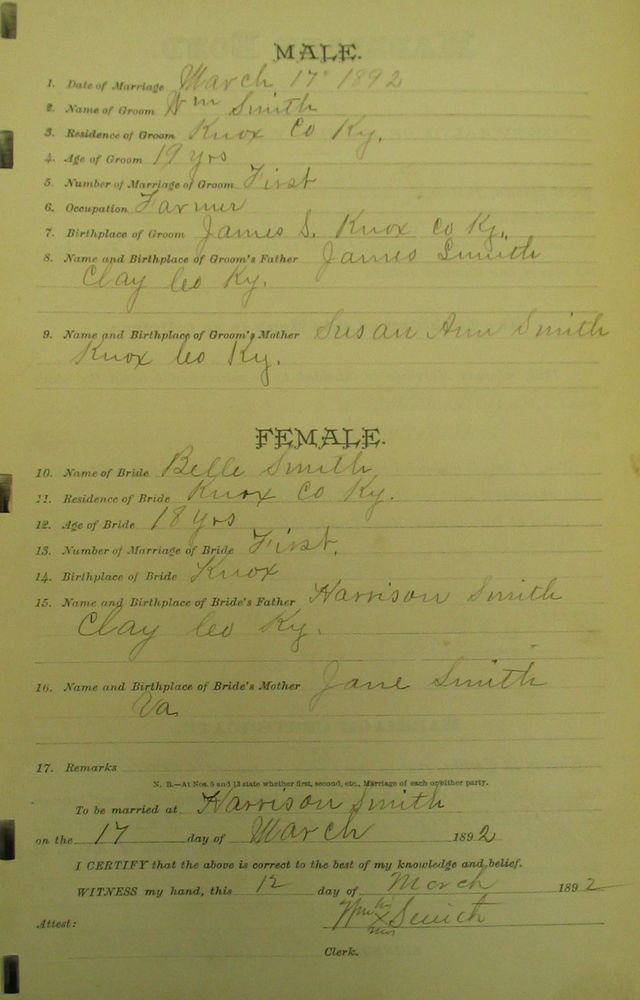 MALE.
1. Date of Marriage March 17" 1892
2. Name of Groom Wm Smith
3. Residence of Groom Knox Co Ky.
4. Age of Groom 19 yrs
5. Number of Marriage of Groom First
6. Occupation Farmer
7. Birthplace of Groom James S. Knox Co Ky.
8. Name and Birthplace of Groom's Father James Smith
Clay Co Ky.
9. Name and Birthplace of Groom's Mother Susan Ann Smith
Knox Co Ky.
FEMALE.
10. Name of Bride Belle Smith
11. Residence of Bride Knox Co Ky.
12. Age of Bride 18 yrs
13. Number of Marriage of Bride First.
14. Birthplace of Bride Knox
15. Name and Birthplace of Bride's Father Harrison Smith
Clay Co Ky.
16. Name and Birthplace of Bride's Mother Jane Smith
Va
17. Remarks
N. B.—At Nos. 5 and 13 state whether first, second, etc., Marriage of each or either party.
To be married at Harrison Smith
on the 17 day of March 1892
I CERTIFY that the above is correct to the best of my knowledge and belief.
WITNESS my hand, this 12 day of March 1892
Wm his X Smith
Attest:
Clerk.